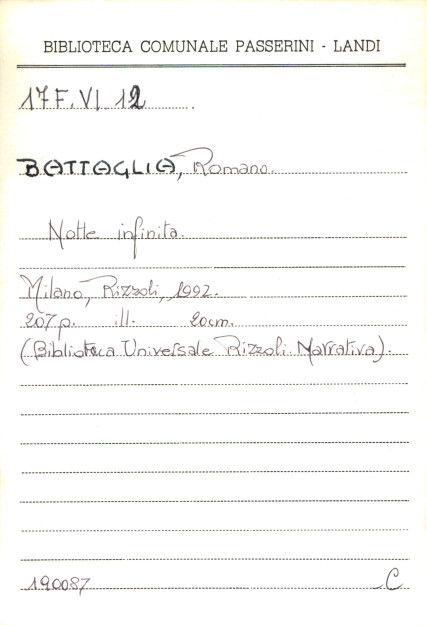 BIBLIOTECA COMUNALE PASSERINI - LANDI
17 F. VI 12
BATTAGLIA, Romano.
Notte infinita.
Milano, Rizzoli, 1992.
207 p. ill. 20 cm.
(Biblioteca Universale Rizzoli. Narrativa).
190087 C